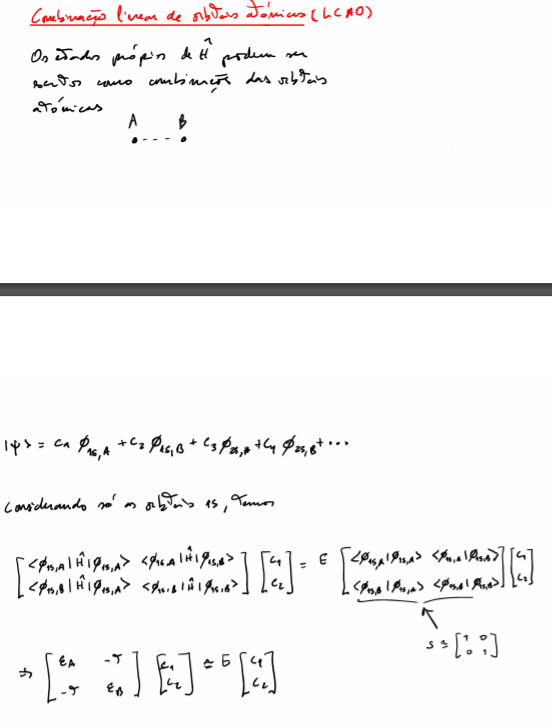 Combinação linear de orbitais atómicas (LCAO)
Os estados próprios de Ĥ podem ser
escritos como combinações das orbitais
atómicas
A B
|ψ> = c₁ ϕ₁ₛ,A + c₂ ϕ₁ₛ,B + c₃ ϕ₂ₛ,A + c₄ ϕ₂ₛ,B + ...
Considerando só as orbitais 1s, temos
[<ϕ₁ₛ,A|Ĥ|ϕ₁ₛ,A> <ϕ₁ₛ,A|Ĥ|ϕ₁ₛ,B>] [c₁] = E [<ϕ₁ₛ,A|ϕ₁ₛ,A> <ϕ₁ₛ,A|ϕ₁ₛ,B>] [c₁]
[<ϕ₁ₛ,B|Ĥ|ϕ₁ₛ,A> <ϕ₁ₛ,B|Ĥ|ϕ₁ₛ,B>] [c₂] [<ϕ₁ₛ,B|ϕ₁ₛ,A> <ϕ₁ₛ,B|ϕ₁ₛ,B>] [c₂]
S ≃ [1 0]
[0 1]
⇒ [εA -τ] [c₁] ≃ E [c₁]
[-τ εB] [c₂] [c₂]